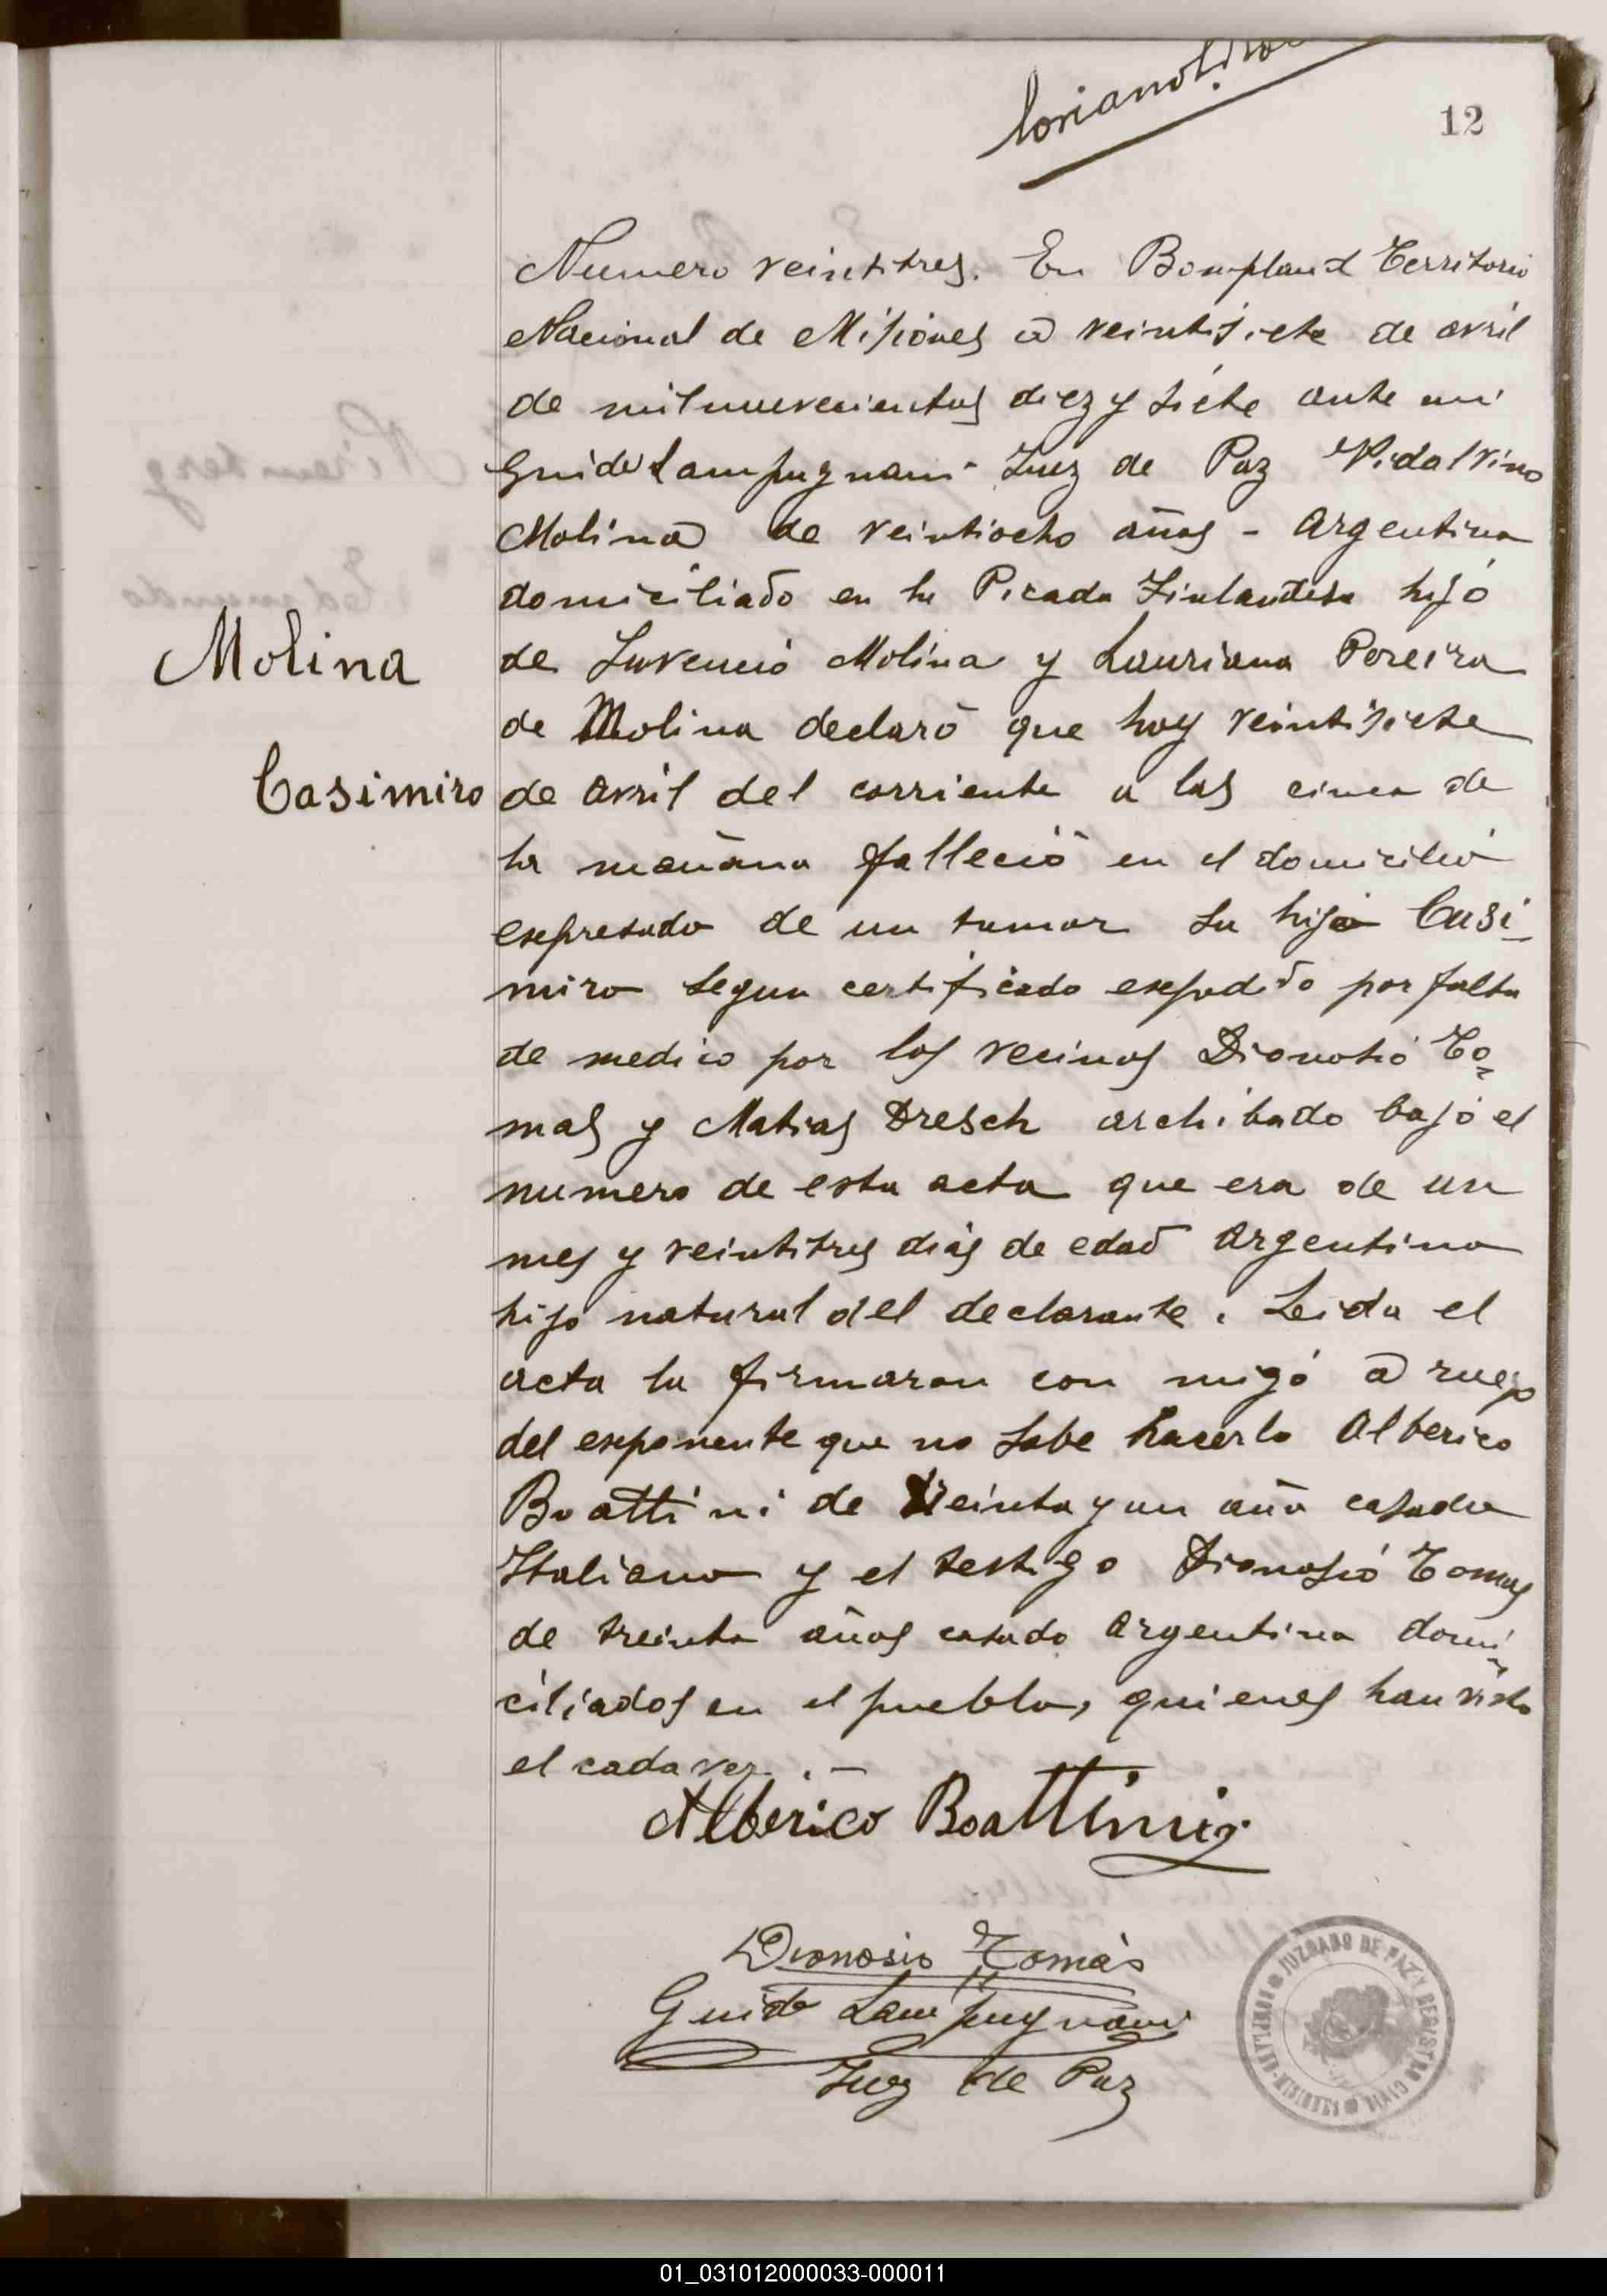 12
Numero veintitres. En Bompland Territorio
Nacional de Misiones a veintisiete de avril
de milnuevecientos diez y siete ante mi
Guido Lampugnani Juez de Paz Vidalvino
Molina de veintiocho años - Argentino
domiciliado en la Picada Finlandesa hijo
de Juvencio Molina y Lauriana Pereira
Molina
de Molina declaró que hoy veintisiete
Casimiro
de avril del corriente a las cinco de
la mañana falleció en el domicilio
expresado de un tumor su hijo Casi-
miro segun certificado expedido por falta
de medico por los vecinos Dionosio To-
mas y Matias Dresch archibado bajo el
numero de esta acta que era de un
mes y veintitres dias de edad Argentino
hijo natural del declarante. Leida el
acta la firmaron con migo a ruego
del exponente que no sabe hacerlo Alberico
Boattini de treinta y un año casado
Italiano y el testigo Dionosio Tomas
de treinta años casado Argentino domi-
ciliados en el pueblo, quienes han visto
el cadaver. . —
Alberico Boattini
Dionosio Tomás
Guido Lampugnani
Juez de Paz
JUZGADO DE PAZ Y REGISTRO CIVIL
01_031012000033-000011